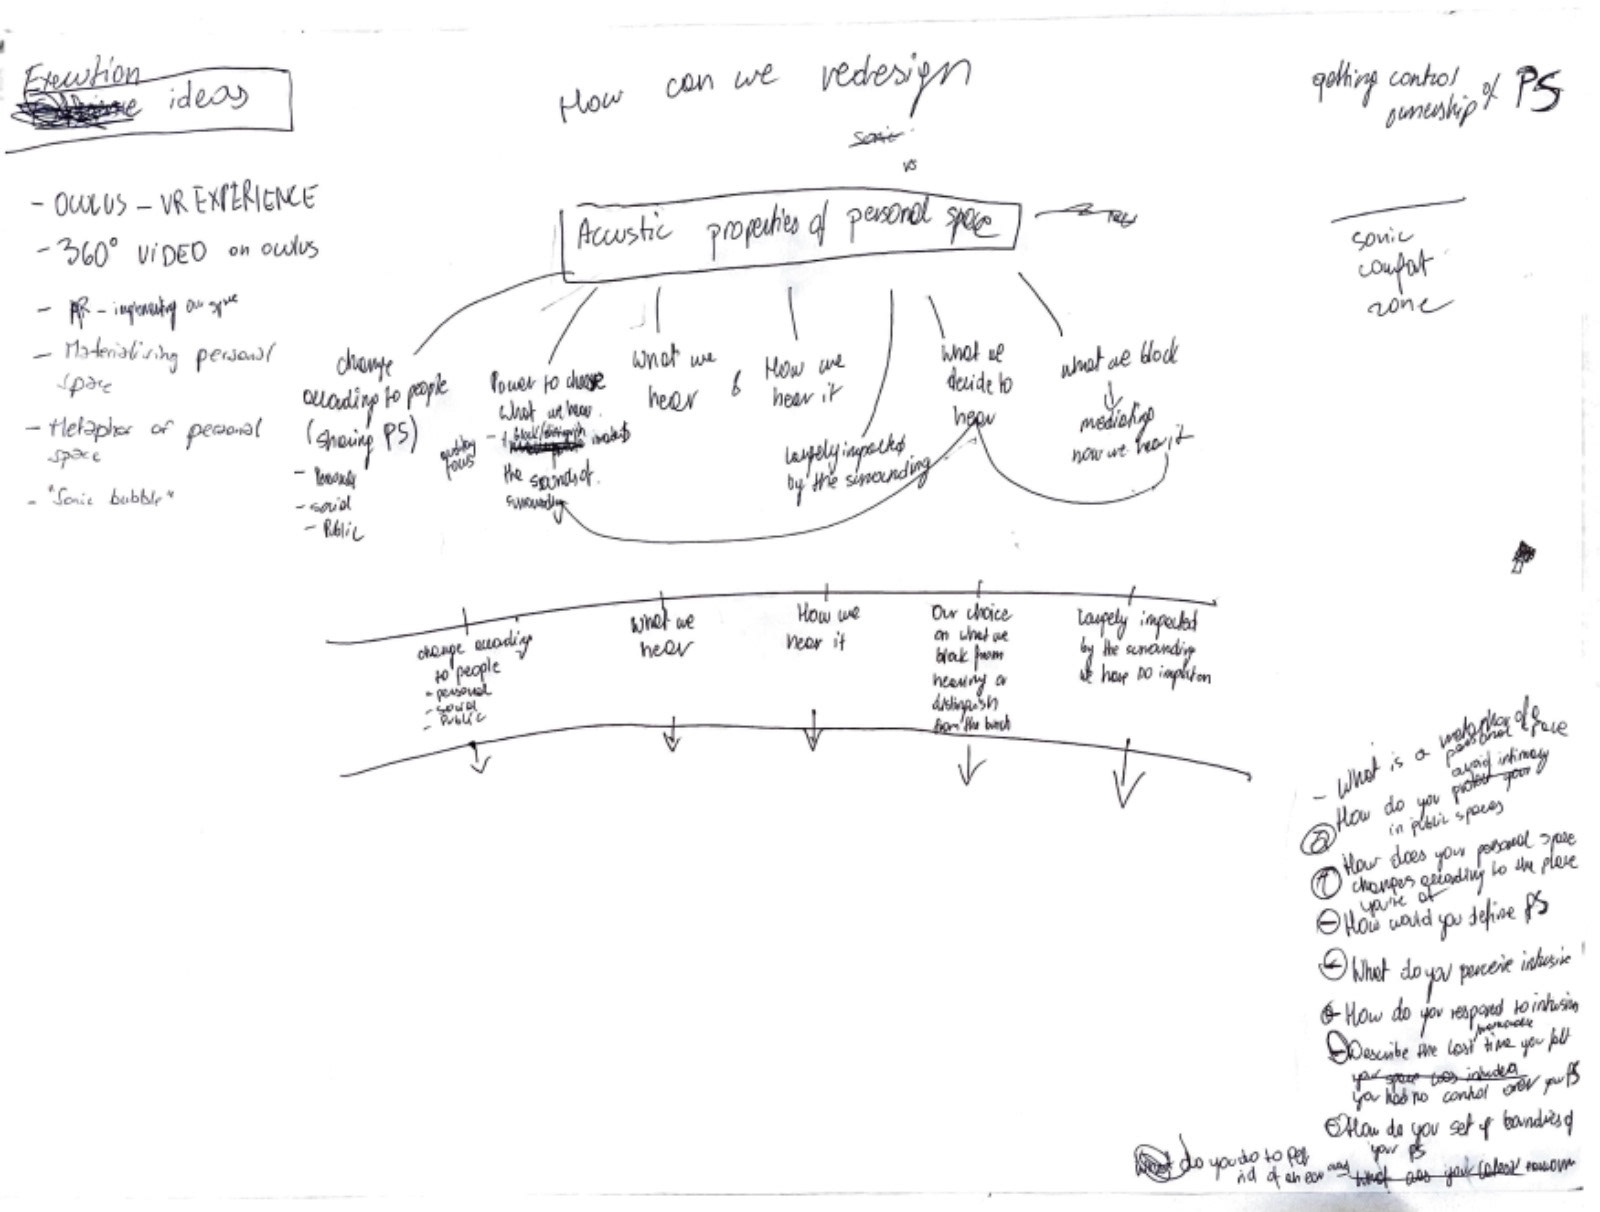 Execution
ideas
- OCULUS - VR EXPERIENCE
- 360° VIDEO on oculus
- AR - implementing our space
- Materialising personal
space
- Metaphor of personal
space
- "Sonic bubble"
How can we redesign
sonic
vs
Accustic properties of personal space
getting control
ownership of PS
sonic
comfort
zone
change
according to people
(sharing PS)
- Personal
- social
- Public
Power to choose
what we hear.
block/distinguish
the sounds of
surrounding
what we
hear
&
How we
hear it
largely impacted
by the surrounding
what we
decide to
hear
what we block
mediating
how we hear it
change according
to people
- personal
- social
- Public
What we
hear
How we
hear it
Our choice
on what we
block from
hearing or
distinguish
from the
Largely impacted
by the surrounding
we have no
- What is a metaphor of
personal space
How do you avoid intimacy
protect your
in public spaces
How does your personal space
changes according to the place
you're at
How would you define PS
What do you perceive intrusive
How do you respond to intrusion
Describe the last time you felt
your space was intruded
you had no control over your PS
How do you set up boundries of
your PS
What do you do to get
rid of an ear
what was your latest